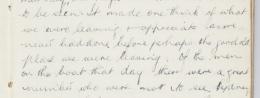 to be seen it made one think of what
we were leaving & appreciate more
never had done before perhaps the good old
place we were leaving. Of the men
on the boat that day there were a great
number who were not to see Sydney